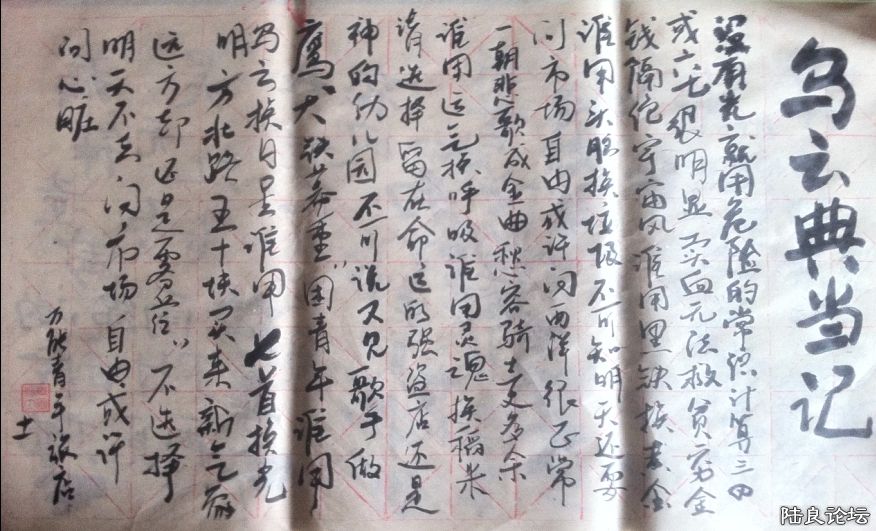 乌云典当记
没有光就用危险的常识计算三四
或六七很明显卖血无法救贫穷金
钱偏佗宇宙风谁用黑铁换黄金
谁用头脑换垃圾不可知明天还要
问市场自由或许问西洋很正常
一朝悲歌成金曲愁容骑士更多余
谁用运气换呼吸谁用灵魂换稻米
请选择留在命运的强盗店还是
神的幼儿园不可说又见歌手做
鹰犬铁幕重围青年谁用
乌云换日星谁用匕首换光
明方北路王十块买来新
远方却还是雾 不选择
明天不去问市场自由或许
问心脏
万能青年旅店
士
陆良论坛